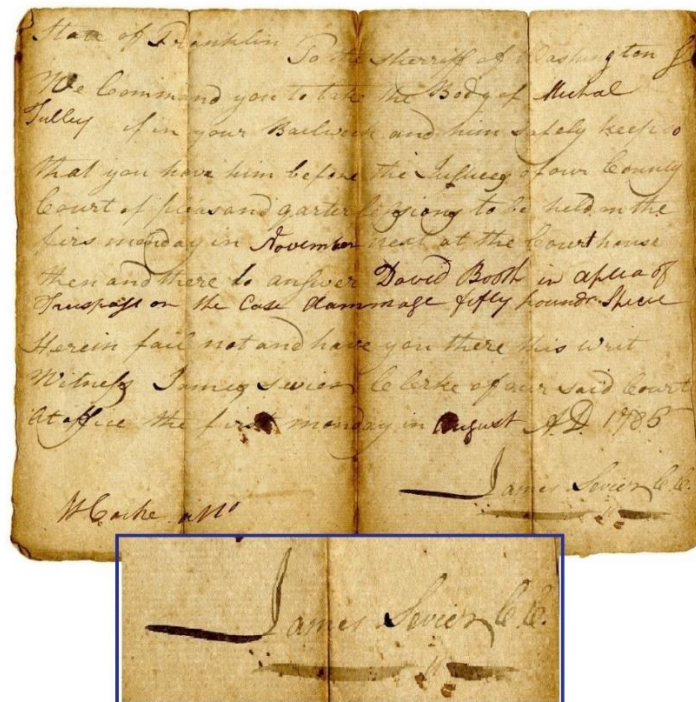 State of Franklin
To the sherriff of Washington
We Command you to take the Body of Michal
Tulley if in your Bailwick and him safely keep so
that you have him before the Justices of our County
Court of pleas and quarter Sessions to be held on the
firs monday in November next at the Courthouse
then and there to answer David Booth in a plea of
Trespass on the Case dammage fifty pounds Specie
Herein fail not and have you there this writ
Witness James Sevier Clerke of our said Court
At office the first monday in August A.D. 1786
James Sevier C.C.
W Cocke
James Sevier C.C.